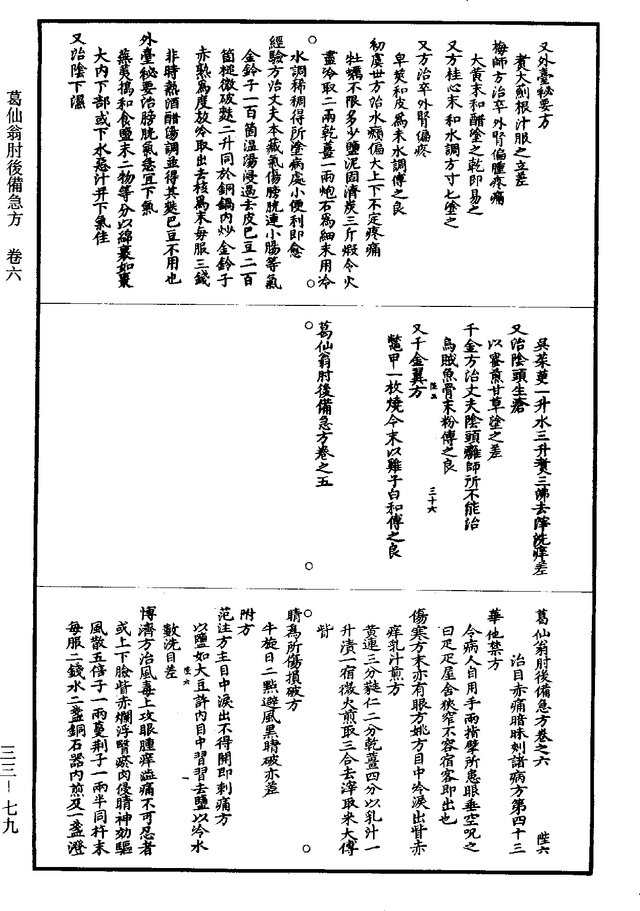 又外臺秘要方
煮大薊根汁服之立差
梅師方治卒外腎偏腫疼痛
大黃末和醋塗之乾即易之
又方桂心末和水調方寸七塗之
又方治卒外腎偏疼
皁莢和皮為末水調傅之良
初虞世方治水㿗偏大上下不定疼痛
牡蠣不限多少鹽泥固濟炭三斤煅令火
盡冷取二兩乾薑一兩炮右為細末用冷
水調稀稠得所塗病處小便利即愈
經驗方治丈夫本藏氣傷膀胱連小腸等氣
金鈴子一百箇溫湯浸過去皮巴豆二百
箇槌微破麩二升同於銅鍋內炒金鈴子
赤熟為度放冷取出去核為末每服三錢
非時熱酒醋湯調並得其麩巴豆不用也
外臺秘要治膀胱氣急宜下氣
蕪荑擣和食鹽末二物等分以綿裹如棗
大內下部或下水惡汁并下氣佳
又治陰下濕
吳茱萸一升水三升煮三沸去滓洗痒差
又治陰頭生瘡
以蜜煎甘草塗之差
千金方治丈夫陰頭癰師所不能治
烏賊魚骨末粉傅之良
又千金翼方
鱉甲一枚燒令末以雞子白和傅之良
陸五
三十六
葛仙翁肘後備急方卷之五
葛仙翁肘後備急方卷之六
陸六
治目赤痛暗昧刺諸病方第四十三
華他禁方
令病人自用手兩指擘所患眼垂空呪之
曰疋疋屋舍狹窄不容宿客即出也
傷寒方末亦有眼方姚方目中冷淚出眥赤
痒乳汁煎方
黃連三分蕤仁二分乾薑四分以乳汁一
升漬一宿微火煎取三合去滓取米大傅
眥
睛為所傷損破方
牛旋日二點避風黑睛破亦差
附方
范注方主目中淚出不得開即刺痛方
以鹽如大豆許內目中習習去鹽以冷水
數洗目差
陸六
一
博濟方治風毒上攻眼腫痒澁痛不可忍者
或上下瞼眥赤爛浮瞖瘀肉侵睛神効驅
風散五倍子一兩蔓荆子一兩半同杵末
每服二錢水二盞銅石器內煎及一盞澄
葛仙翁肘後備急方 卷六
三三—七九